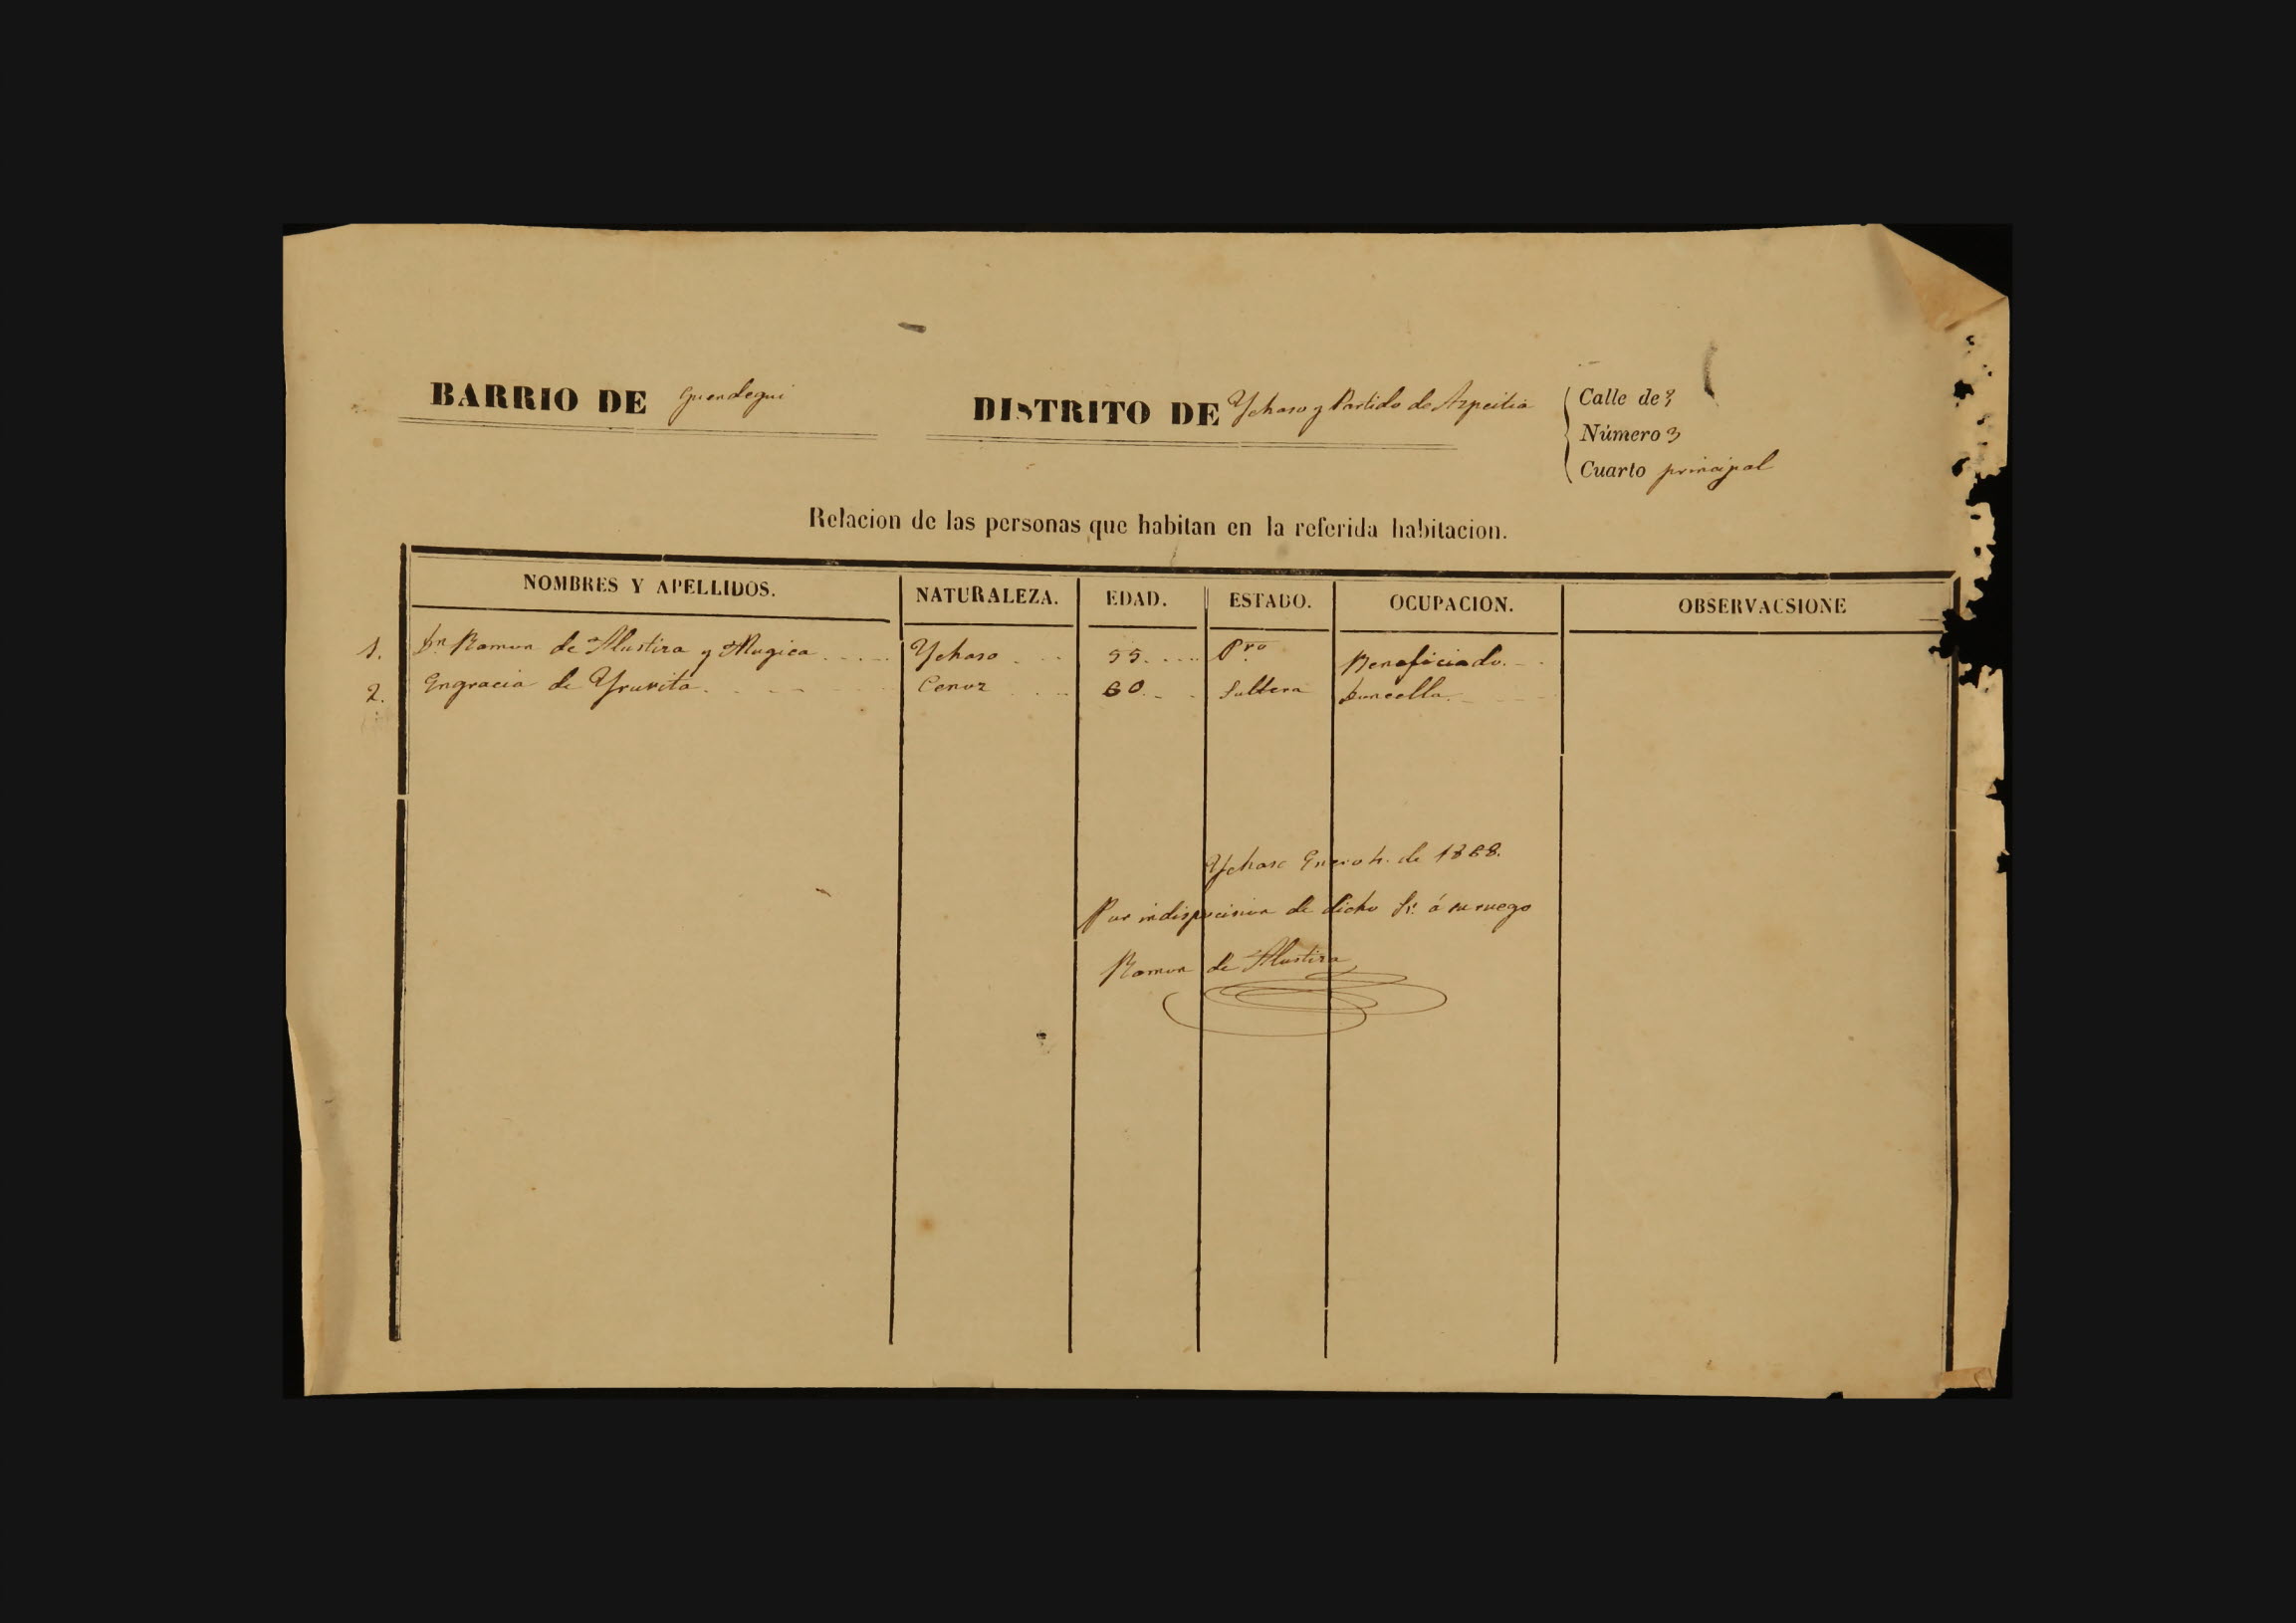 BARRIO DE Guendegui
DISTRITO DE Ychaso y Partido de Azpeitia
Calle de 3
Número 3
Cuarto principal
Relacion de las personas que habitan en la referida habitacion.
NOMBRES Y APELLIDOS. NATURALEZA. EDAD. ESTADO. OCUPACION. OBSERVACSIONE
1. Dn Ramon de Alustiza y Mugica Ychaso 55 Pro Beneficiado
2. Engracia de Yrurita Soltera Doncella
Ychaso Enero de 1868.
Por indisposicion de dicho Sr. á su ruego
Ramon de Alustiza